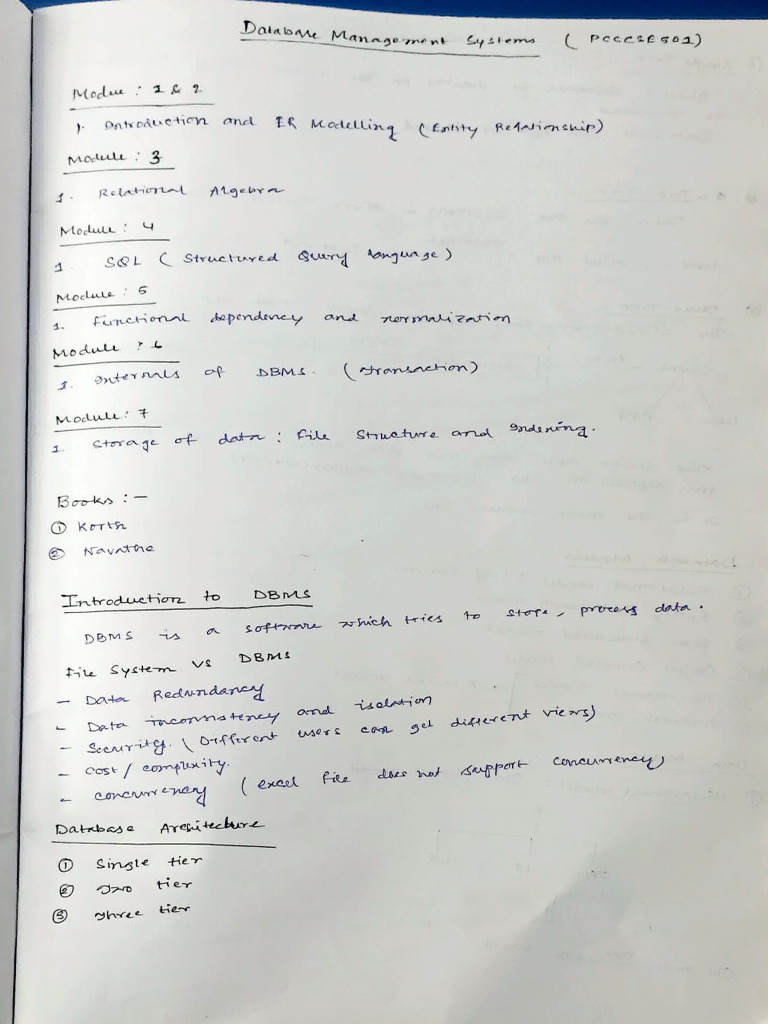 Database Management Systems (PCCCSE501)
Module : 1 & 2
1. Introduction and ER Modelling (Entity Relationship)
Module : 3
1. Relational Algebra
Module : 4
1 SQL ( Structured Query language )
Module : 5
1. Functional dependency and normalization
Module : 6
1. Internals of DBMS. (transaction)
Module : 7
1. Storage of data : File Structure and indexing.
Books :-
① Korth
② Navathe
Introduction to DBMS
DBMS is a software which tries to store, process data.
File System vs DBMS
- Data Redundancy
- Data inconsistency and isolation
- Security. ( Different users can get different views)
- Cost / complexity.
- concurrency ( excel file does not support concurrency)
Database Architecture
① Single tier
② Two tier
③ Three tier